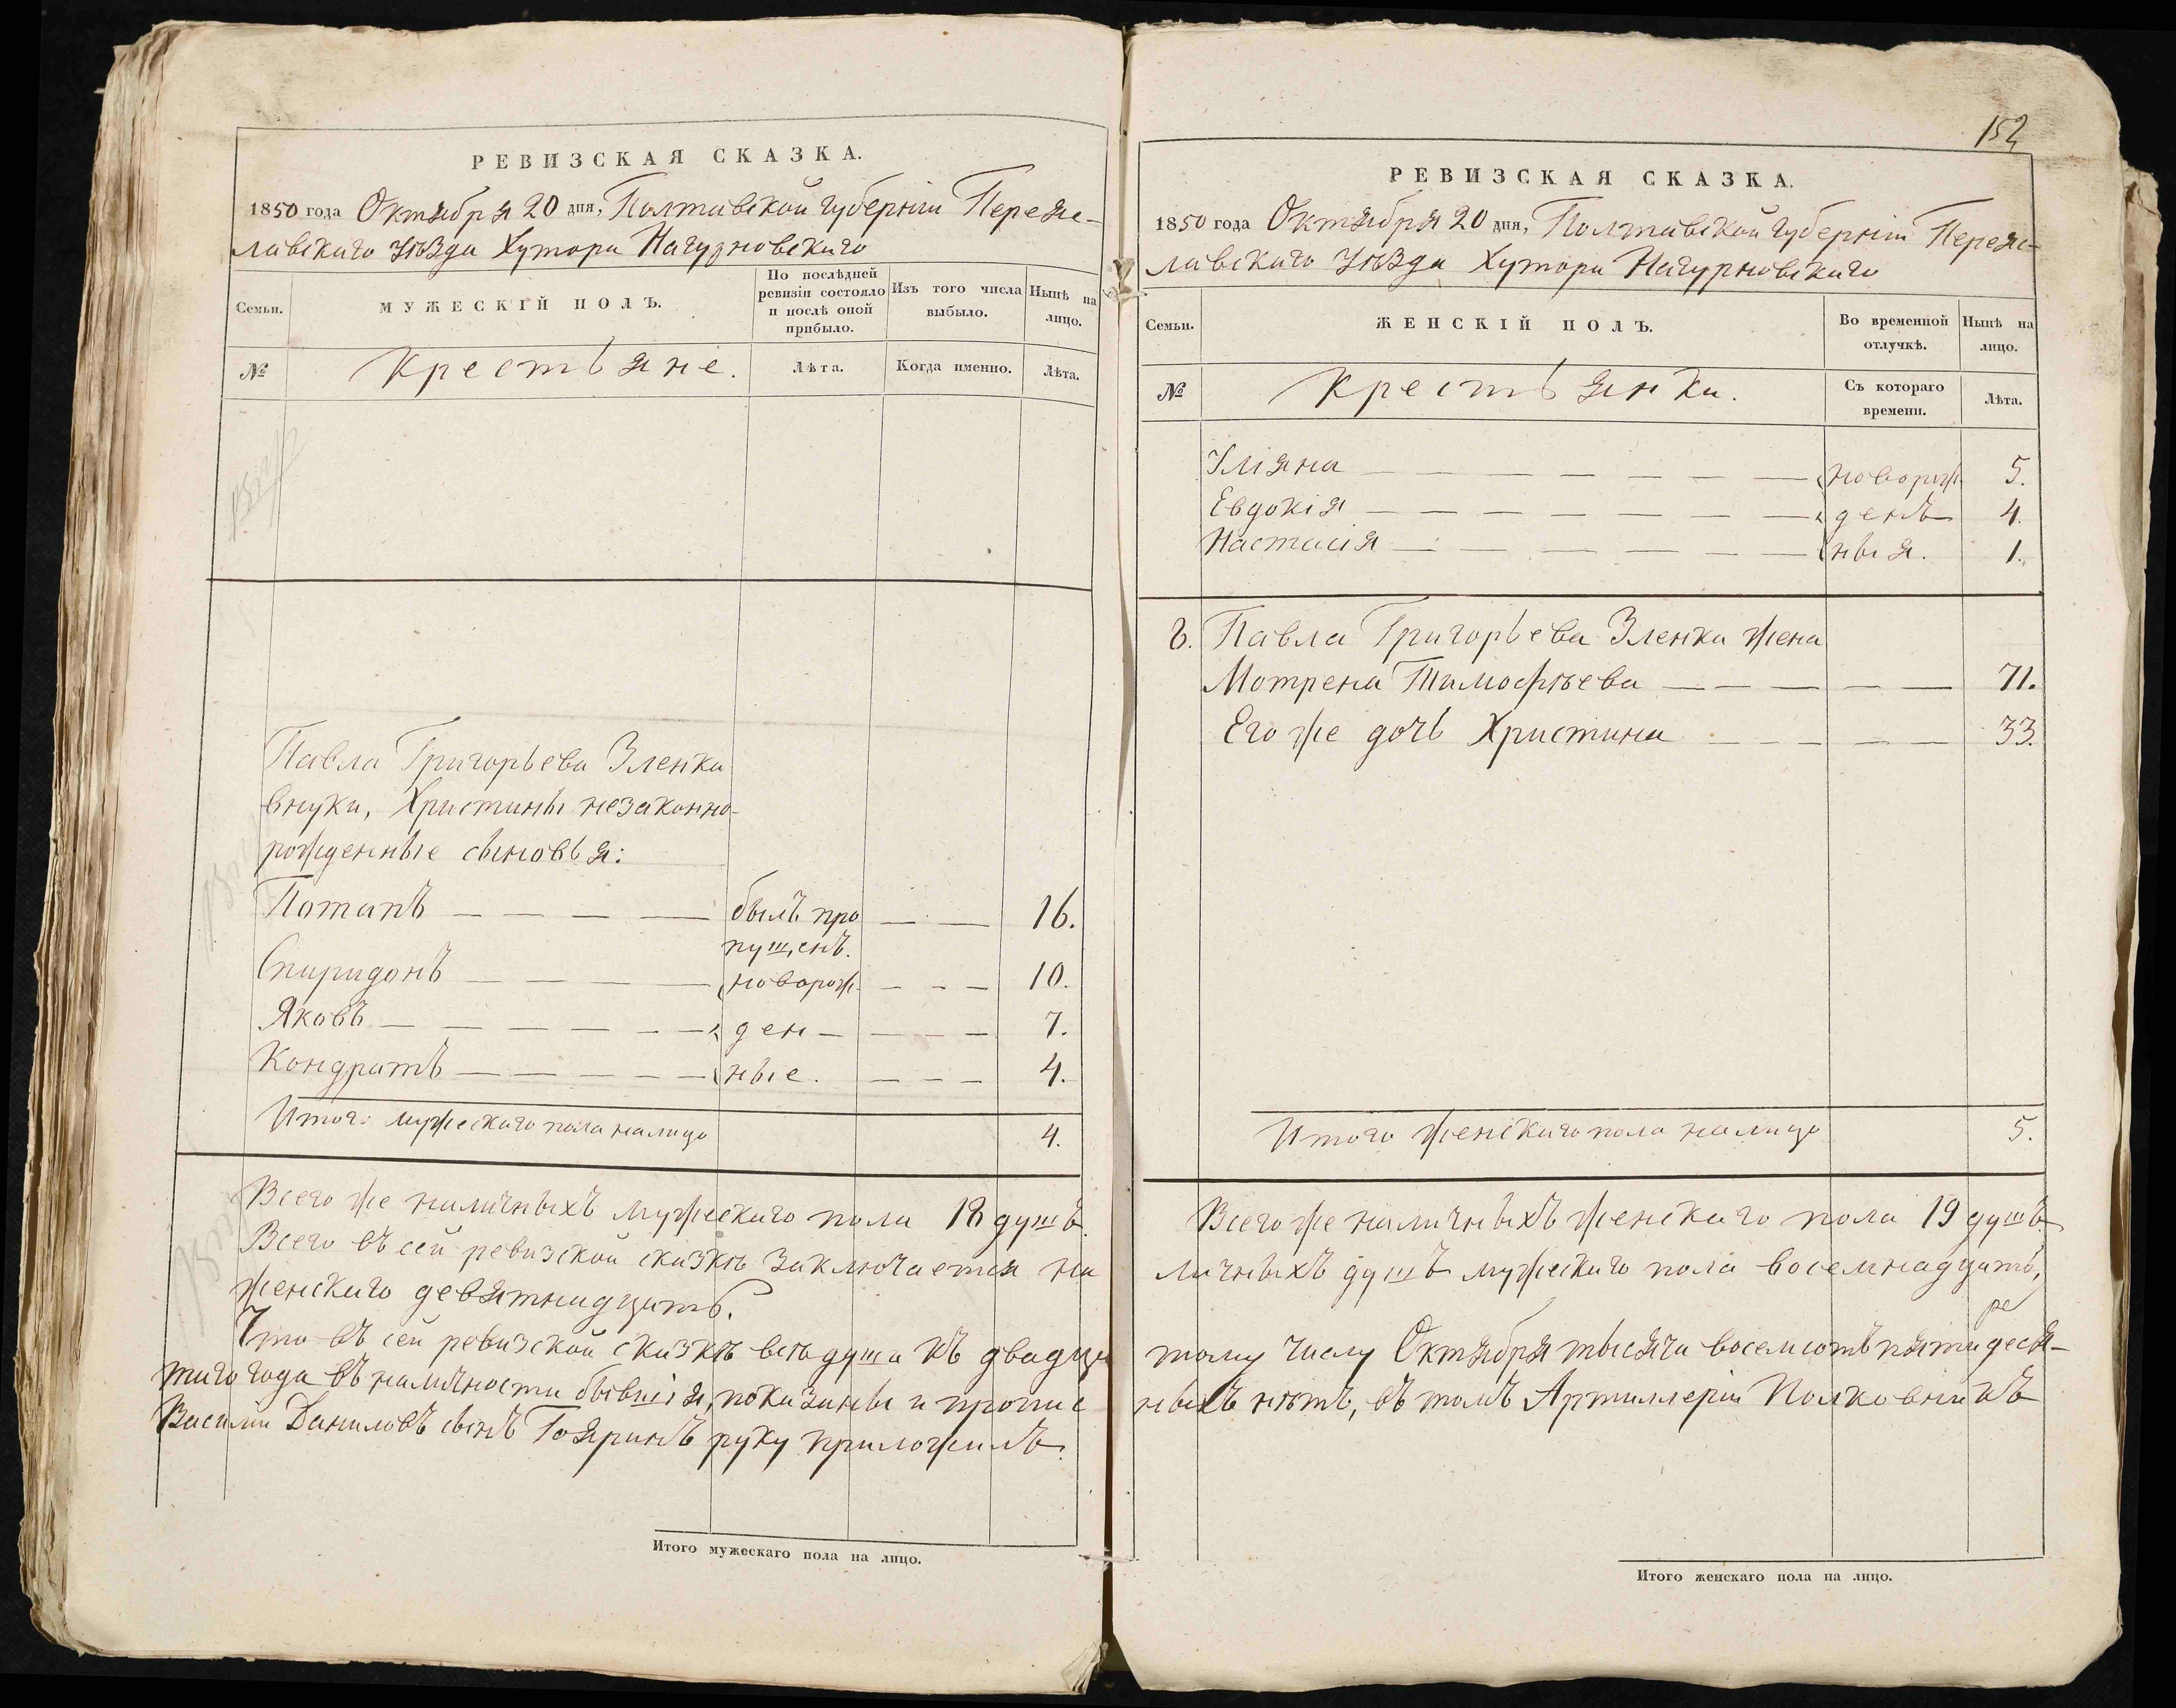 РЕВИЗСКАЯ СКАЗКА.
1850 года Октября 20 дня, Полтавской губерніи Переяс-
лавскаго уѣзда Хутора
Семьи.
МУЖЕСКІЙ ПОЛЪ.
По послѣдней
ревизіи состояло
и послѣ оной
прибыло.
Изъ того числа
выбыло.
Нынѣ на
лицо.
№
Крестьяне.
Лѣта.
Когда именно.
Лѣта.
Павла Григорьева Зленка
внуки, Христины незаконно-
рожденные сыновья:
Потапъ — — — — былъ про — — 16.
пущенъ.
Спиридонъ — — — — новорож — — — 10.
Яковъ — — — — — — — ден — — — — 7.
Кондратъ — — — — — ные. — — — 4.
Итого мужескаго пола налицо 4.
Всего же наличныхъ мужескаго пола 18 душъ.
Всего въ сей ревизской сказкѣ заключается на
женскаго девятнадцать.
Что въ сей ревизской сказкѣ всѣ души къ двадца
таго года въ наличности бывшія, показаны и пропис
Василій Даниловъ сынъ руку приложилъ.
Итого мужескаго пола на лицо.
152
РЕВИЗСКАЯ СКАЗКА.
1850 года Октября 20 дня, Полтавской губерніи Переяс-
лавскаго уѣзда Хутора
Семьи.
ЖЕНСКІЙ ПОЛЪ.
Во временной
отлучкѣ.
Нынѣ на
лицо.
№
Крестьянки.
Съ котораго
времени.
Лѣта.
Уліяна — — — — — — — новорож 5.
Евдокія — — — — — — — — ден 4.
Настасія — — — — — — ныя. 1.
8. Павла Григорьева Зленка жена
Мотрена Тимофѣева — — — — — 71.
Его же дочь Христина — — — — — 33.
Итого женскаго пола налицо 5.
Всего же наличныхъ женскаго пола 19 душъ.
личныхъ душъ мужескаго пола восемнадцать,
ре
тому числу Октября тысяча восемсотъ пятидеся-
ныхъ нѣтъ, въ томъ Артиллеріи Полковникъ
Итого женскаго пола на лицо.